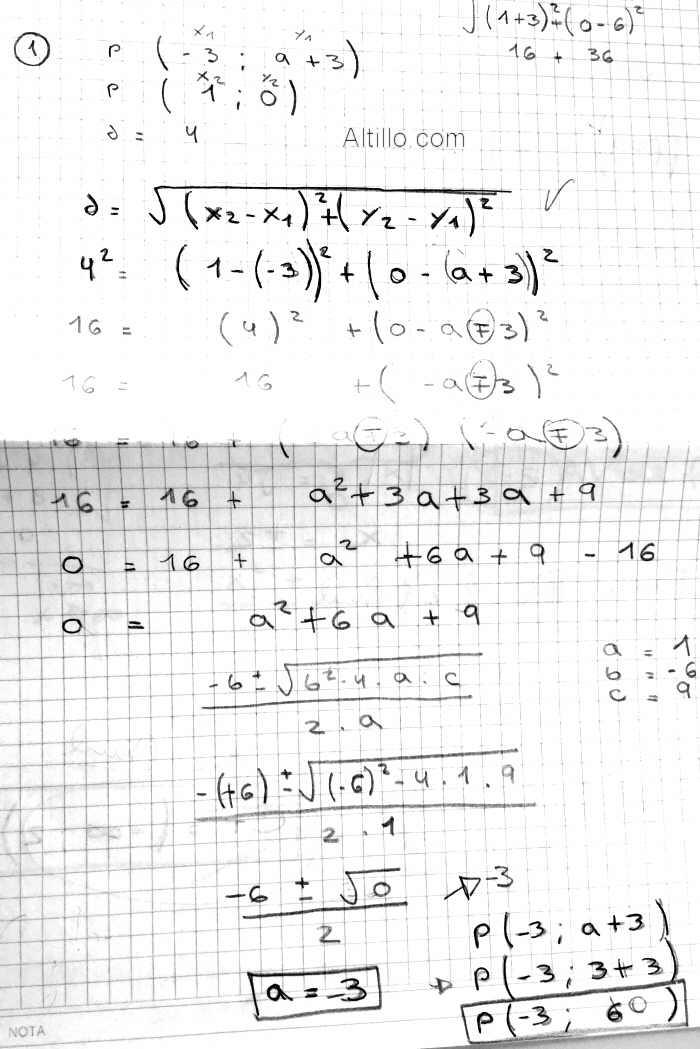 √(1+3)²+(0-6)²
16 + 36
1
x₁ y₁
P (-3 ; a+3)
x₂ y₂
P (1 ; 0)
d = 4
Altillo.com
d = √(x₂-x₁)²+(y₂-y₁)² ✓
4² = (1-(-3))²+(0-(a+3))²
16 = (4)² +(0-a∓3)²
16 = 16 +(-a∓3)²
16 = 16 + (-a∓3) (-a∓3)
16 = 16 + a²+3a+3a+9
0 = 16 + a² +6a+9-16
0 = a²+6a+9
a = 1
b = -6
c = 9
-b ± √b²-4.a.c
2.a
-(+6) ± √(-6)²-4.1.9
2.1
-6 ± √0
2
-3
P(-3; a+3)
P(-3; 3+3)
a = -3
P(-3; 60)
NOTA